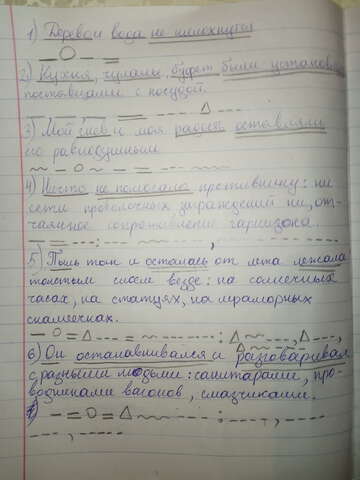 1) Деревья вода не шелохнутся
2) Кухня, чуланы будет были
поставцами с посудой.
3) Мой гнев и моя радость оставляли
его равнодушным
4) Ничто не помогало противнику: ни
сети проволочных заграждений ни, от-
чаянное сопротивление гарнизона.
5) Пыль так и осталась от лета лежала
толстым слоем везде: на солнечных
часах, на статуях, на мраморных
скамеечках.
6) Он останавливался и разговаривал
с разными людьми: санитарами, про-
водниками вагонов, смазчиками.